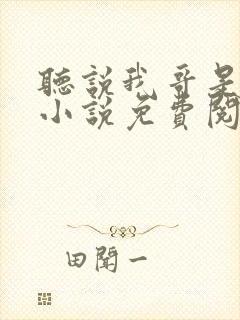 聽說我哥是
小說免費閱
田聞一